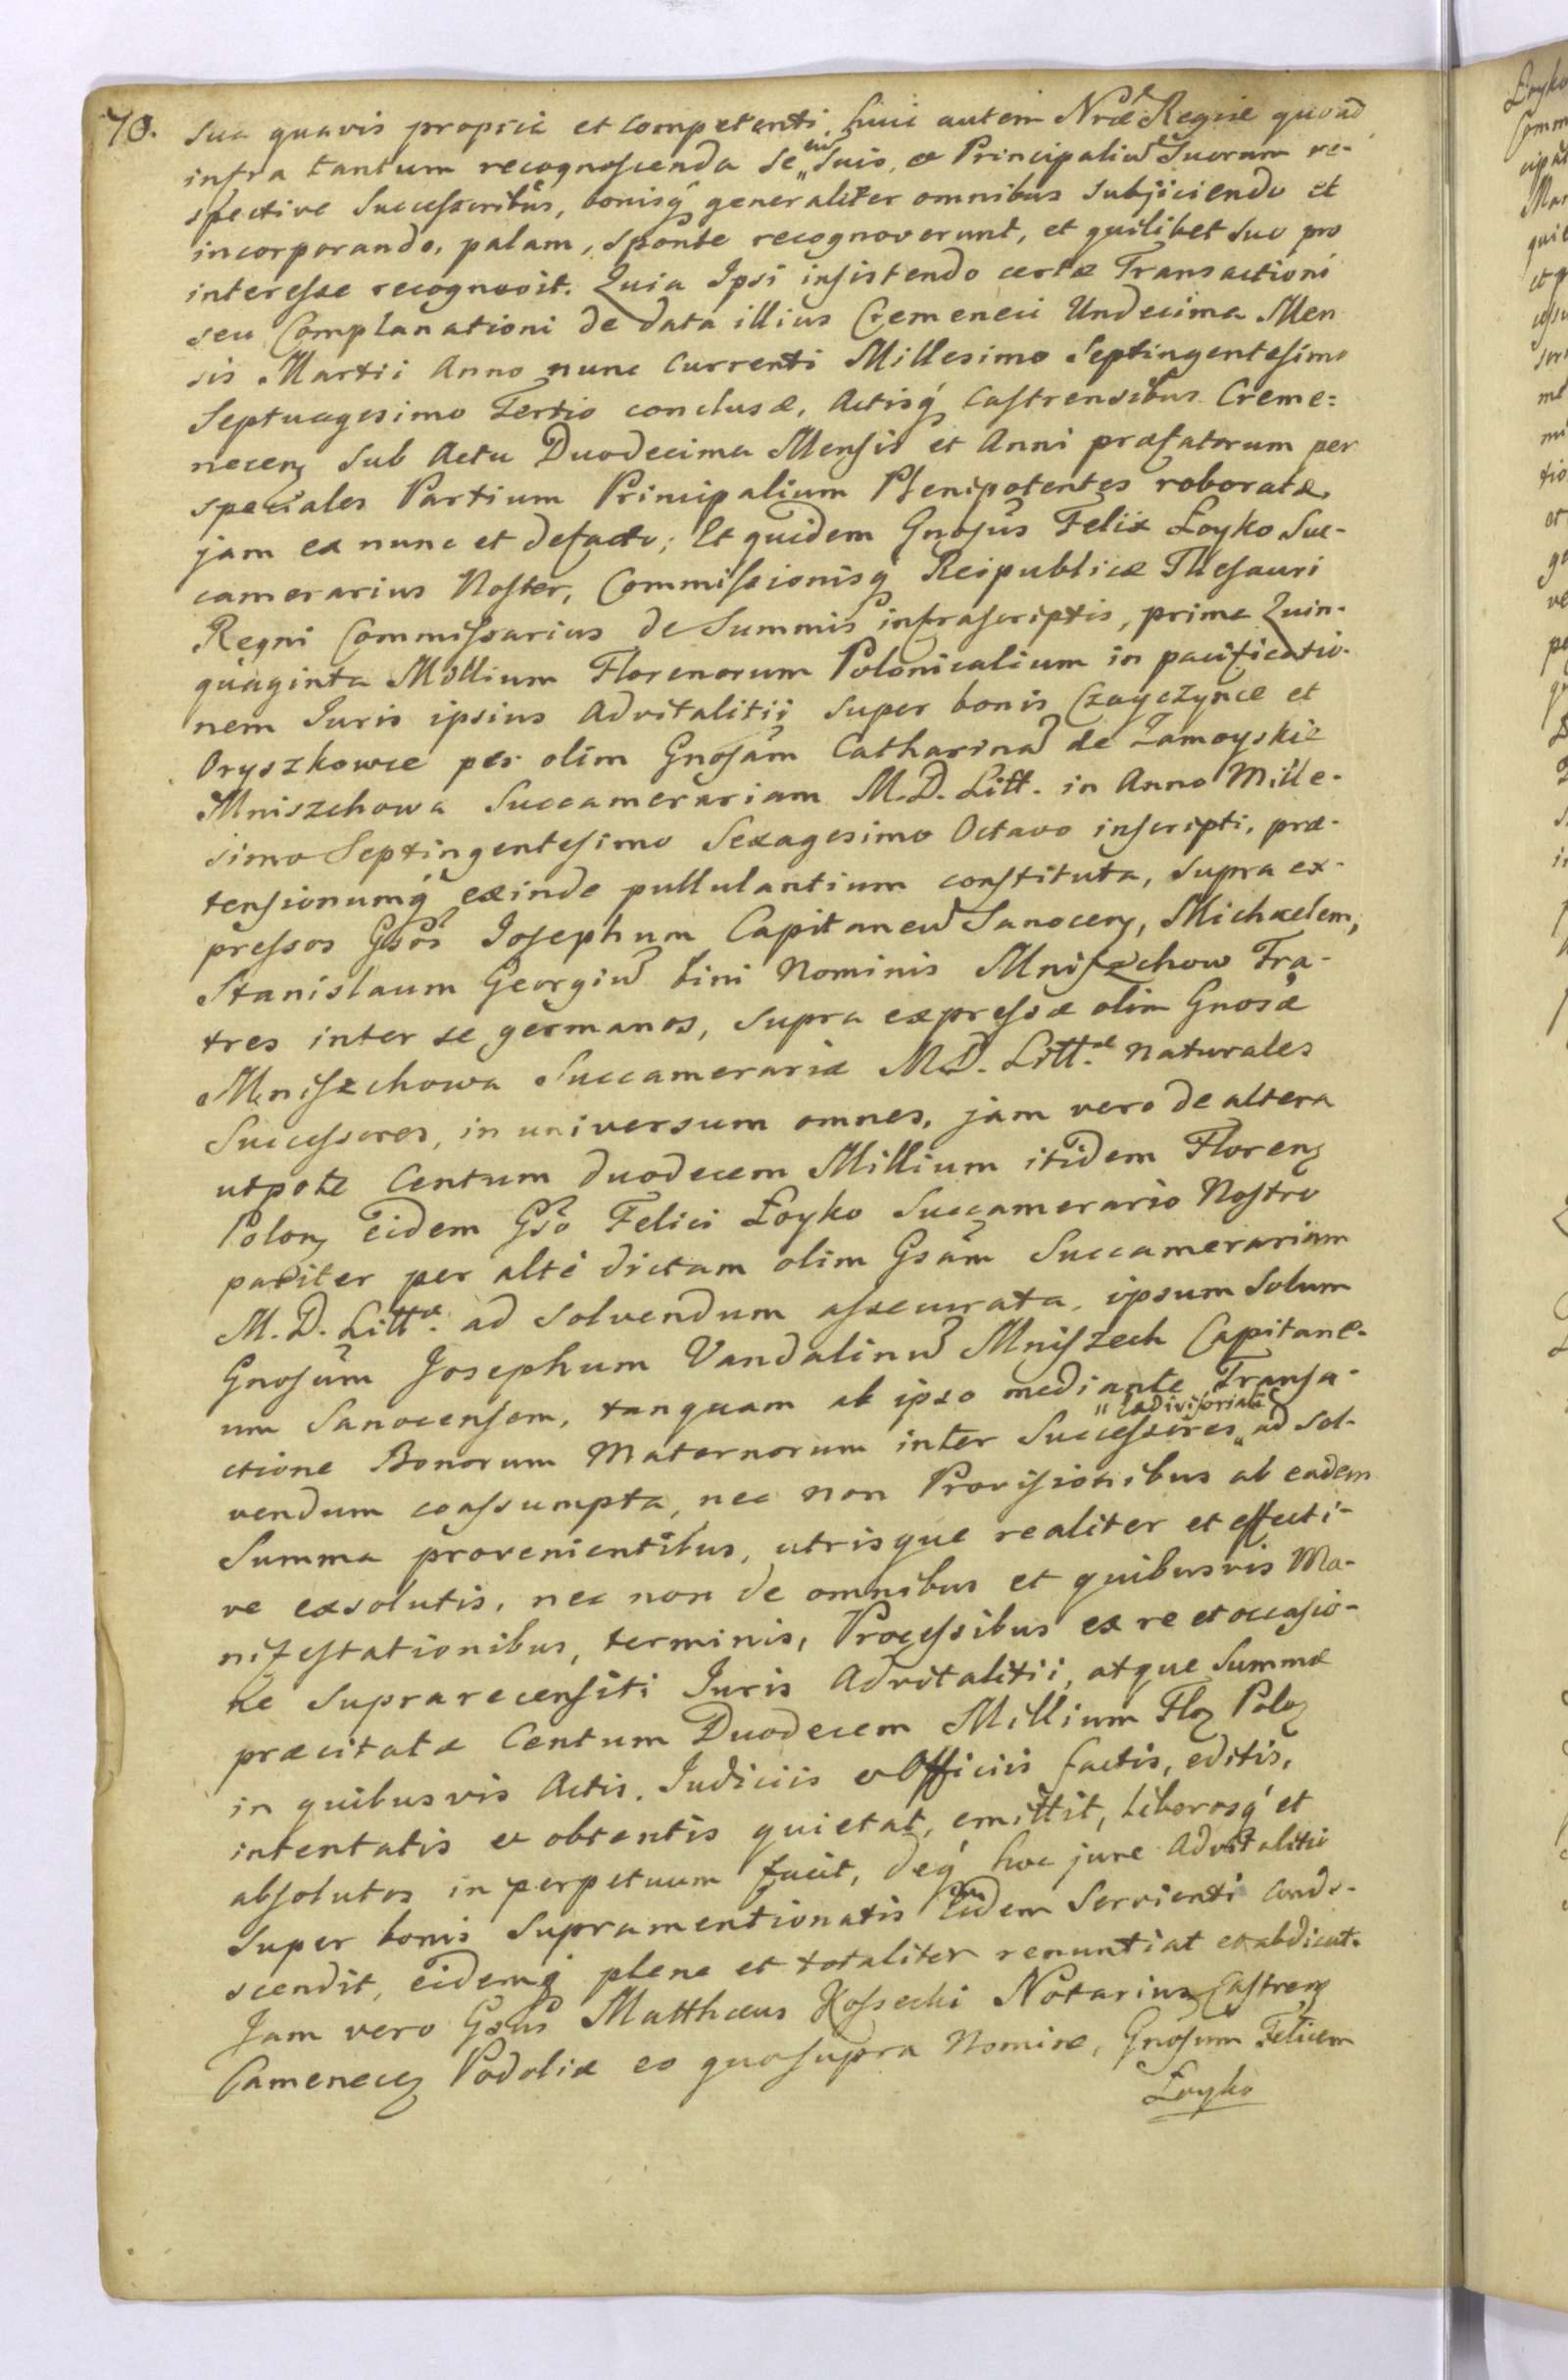 70. sua quavis propria et competenti, huic autem Nrae Regiae quoad
infra tantum recognoscenda se cum suis, et Principaliū Suorum re-
spective Successoribus, bonisq́ generaliter omnibus subjiciendo et
incorporando, palam, sponte recognoverunt, et quilibet suo pro
interesse recognovit. Quia Ipsi insistendo certæ Transactioni
seu Complanationi de data illius Cremeneci Undecima Men
sis Martii Anno nunc currenti Millesimo Septingentesimo
Septuagesimo Tertio conclusæ, Actisq́ Castrensibus Creme=
necen̄ sub Actu Duodecima Mensis et Anni præfatorum per
speciales Partium Principalium Plenipotentes roboratæ,
jam ex nunc et defacto; Et quidem Gnosus Felix Łoyko Suc-
camerarius Noster, Commissionisq́ Reipublicæ Thesauri
Regni Commissarius de Summis infrascriptis, prima Quin-
quaginta Millium Florenorum Polonicalium in pacificatio-
nem Juris ipsius Advitalitii super bonis Czayczynce et
Oryszkowce per olim Gnosam Catharinā de Zamoyskie
Mniszchowa Succamerariam M. D. Litt. in Anno Mille-
simo Septingentesimo Sexagesimo Octavo inscripti, præ-
tensionumq́ exinde pullulantium constituta, supra ex-
pressos Gsos Josephum Capitaneū Sanocen̄, Michaelem,
Stanislaum Georgiū bini Nominis Mniszchow Fra-
tres inter se germanos, supra expressæ olim Gnosæ
Mniszchowa Succamerariæ M. D. Littæ naturales
Successores, in universum omnes, jam vero de altera
utpote Centum duodecem Millium itidem Floren̄
Polon̄ eidem Gso Felici Łoyko Succamerario Nostro
pariter per alte dictam olim Gsam Succamerariam
M. D. Littæ. ad solvendum assecurata, ipsum solum
Gnosum Josephum Vandalinū Mniszech Capitane-
um Sanocensem, tanquam ab ipso mediante Transa-
ctione Bonorum Maternorum inter Successores „ exdivisoriali „ ad sol-
vendum coassumpta, nec non Provisionibus ab eadem
Summa provenientibus, utrisque realiter et effecti-
ve exsolutis, nec non de omnibus et quibusvis Ma-
nifestationibus, terminis, Processibus ex re et occasio-
ne suprarecensiti Juris Advitalitii, atque Summæ
præcitatæ Centum Duodecem Millium Flo Polo
in quibusvis Actis, Judiciis et Officiis factis, editis,
intentatis et obtentis quietat, emittit, liberosq́ et
absolutos in perpetuum facit, deq́ hoc jure Advitalitio
super bonis supramentionatis eidem servienti conde-
scendit, eidemq́ plene et totaliter renuntiat et abdicat.
Jam vero Gsus Matthæus Kossecki Notarius Castren̄
Camenecen̄ Podoliæ eo quo supra Nomine, Gnosum Felicem
Łoyko